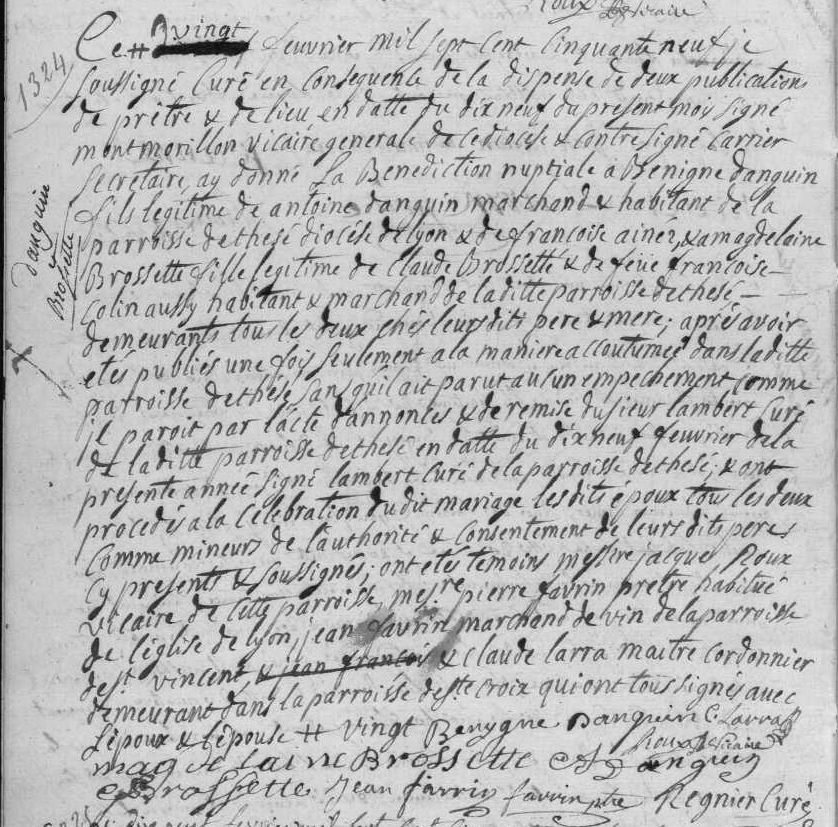 Roux Vicaire
Ce # vingt feuvrier mil sept cent cinquante neuf je
1324
soussigné Curé en Consequence de la dispense de deux publications
de prêtre & de lieu en datte du dix neuf du present mois signé
montmorillon vicaire generale de ce diocése & contresigné Carrier
secretaire, ay donné La Benediction nuptiale a Benigne danguin
fils legitime de antoine danguin marchand & habitant de la
parroisse de thesé diocése de lyon & de francoise ainéz, & a magdelaine
danguin
Brossette
Brossette fille legitime de Claude Brossette & de feüe francoise
Colin aussy habitant & marchand de laditte parroisse de thesé
demeurants tous les deux chés leursdits pere & mere; aprés avoir
etés publiés une fois seulement a la maniere accoutumeé dans laditte
parroisse de thesé sans qu'il ait parut aucun empechement comme
il paroit par l'acte d'annonces & de remise du sieur lambert Curé
de laditte parroisse de thesé en datte du dix neuf feuvrier de la
presente anneé signé lambert Curé de la parroisse de thesé; & ont
procedés a la Celebration du dit mariage lesdits époux tous les deux
Comme mineurs de l'authorité & Consentement de leurs dits peres
Cy presents & soussignés; ont etés temoins messire jacque Roux
vicaire de cette parroisse, mesre pierre favrin prètre habitué
de l'église de lyon jean favrin marchand de vin de la parroisse
de st. vincent, & jean francois & Claude larra maitre Cordonnier
demeurant dans la parroisse de ste Croix qui ont tous signés avec
l'époux & l'épouse # vingt Benygne Danguin C. Larra
Roux Vicaire
magdelaine Brossette A Danguin
C Brossette Jean favrin favrin ptre Regnier Curé